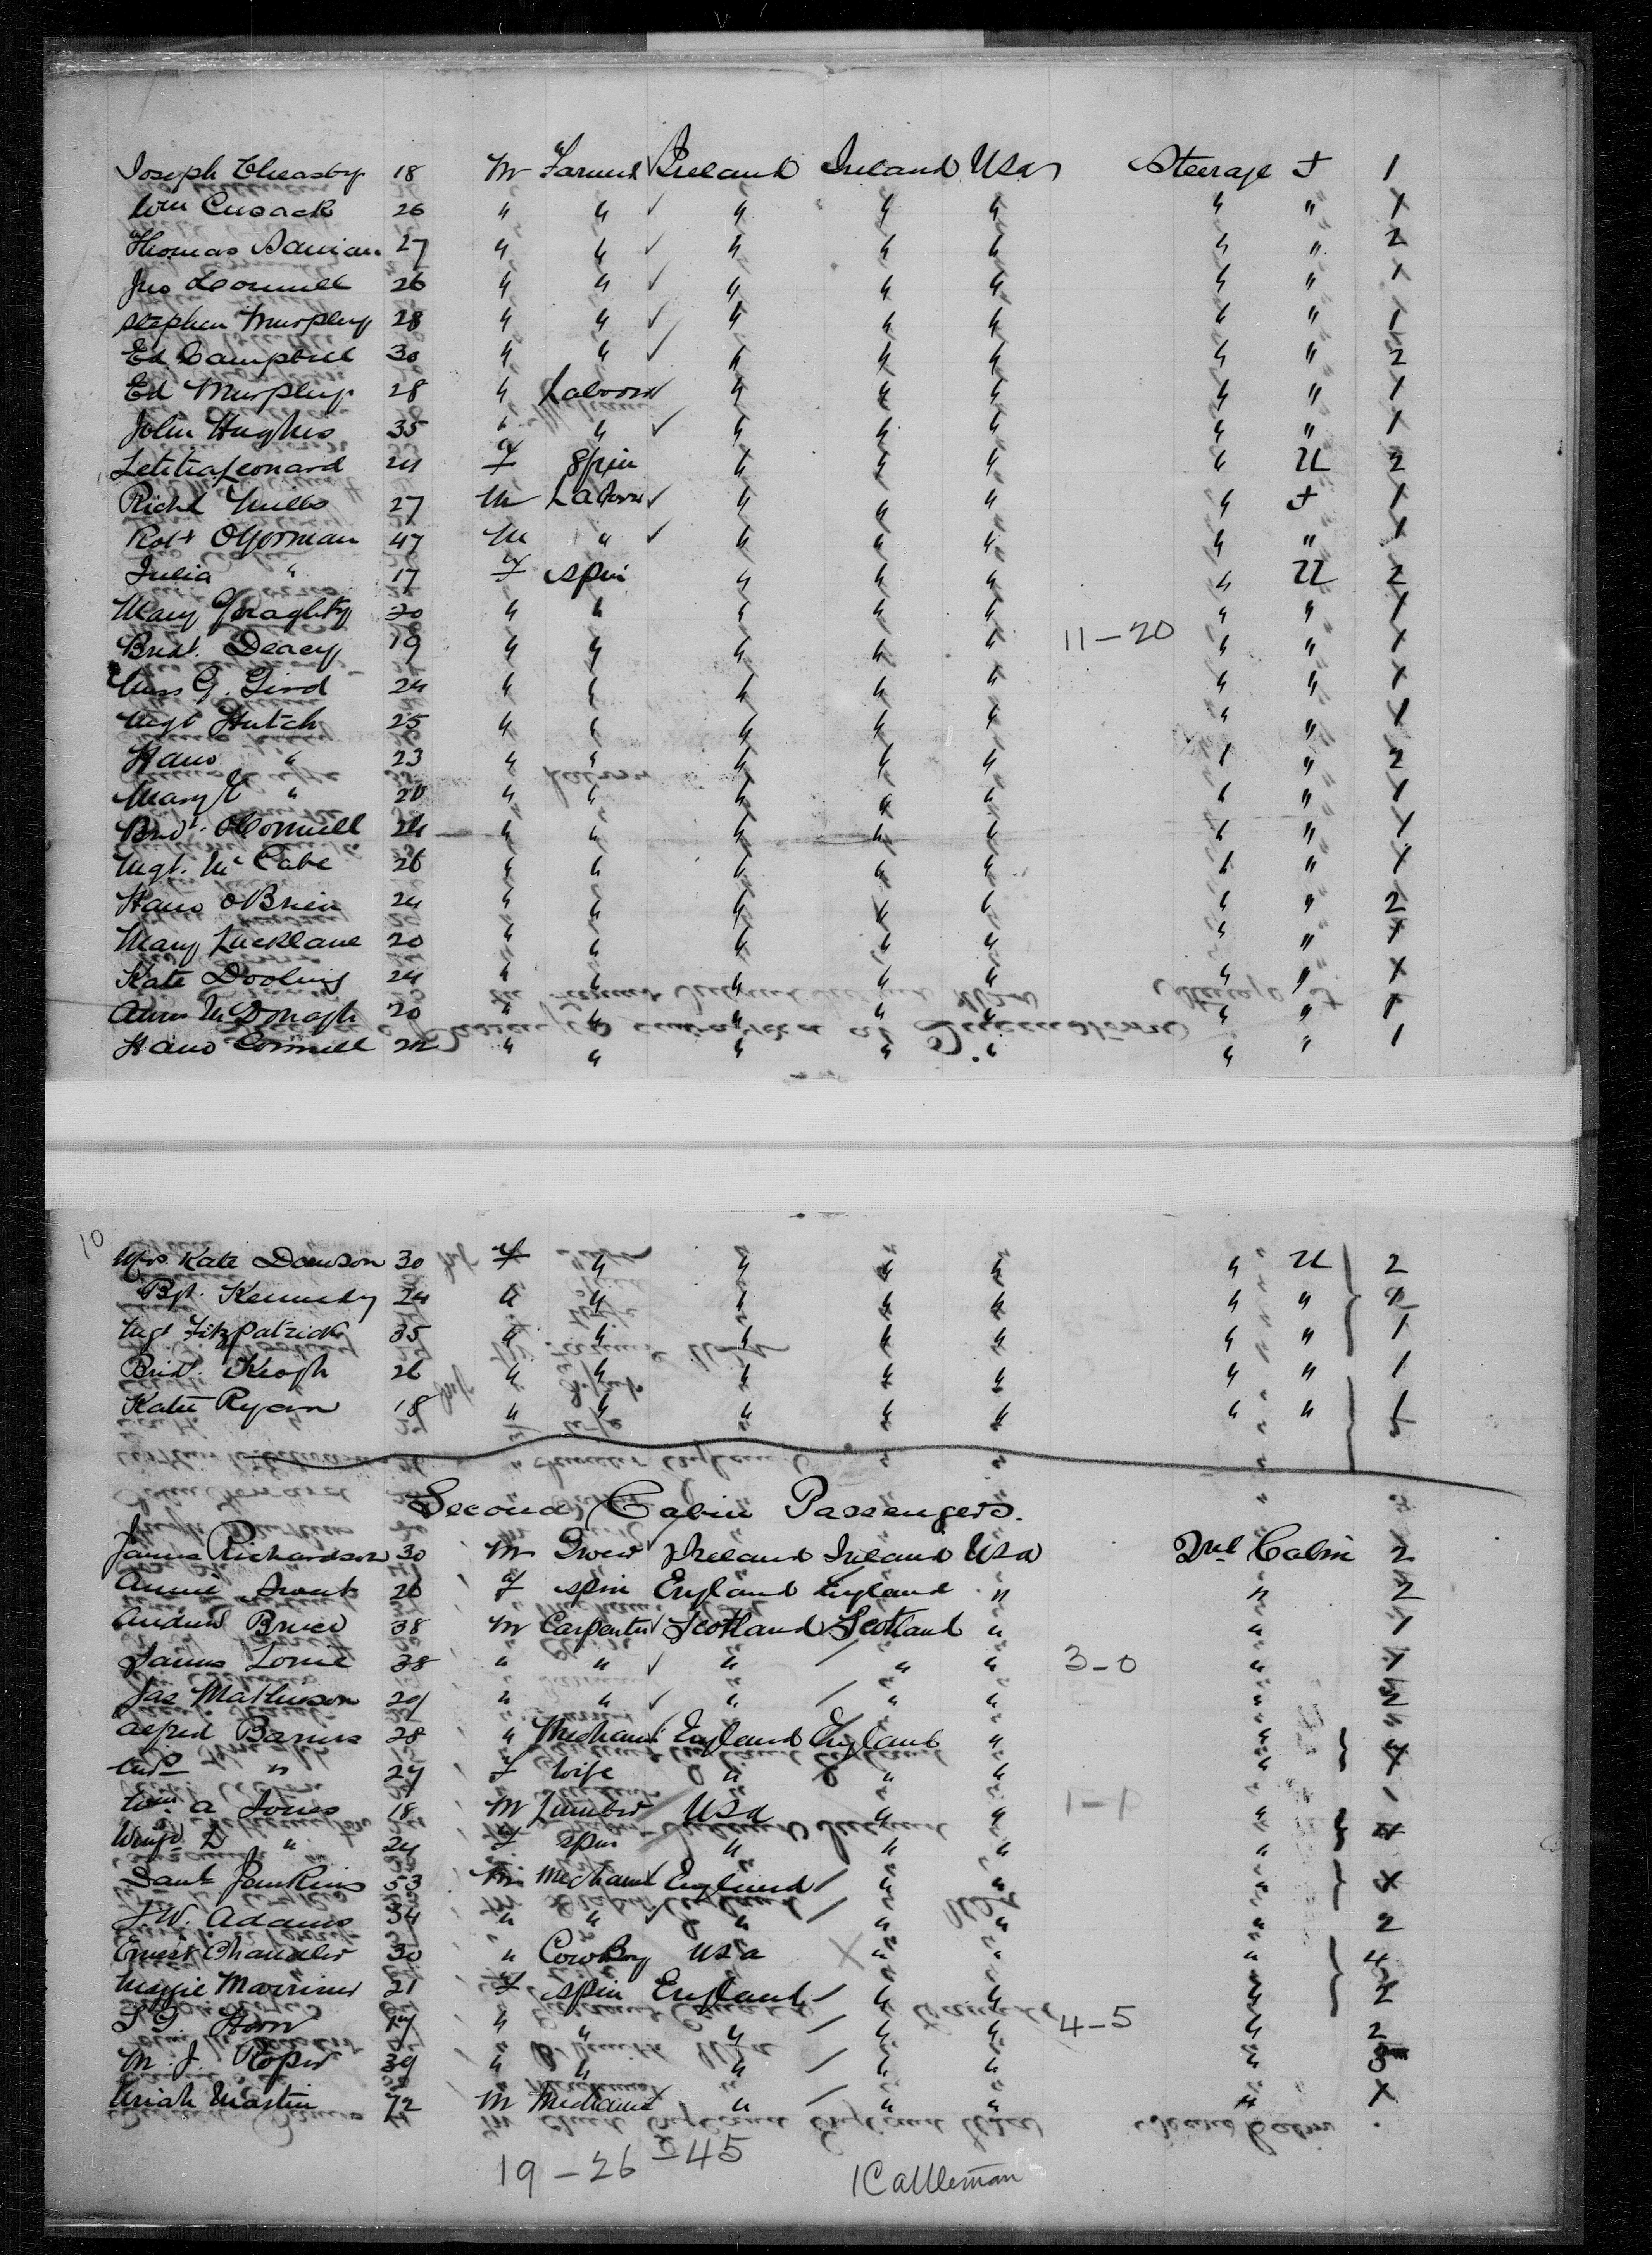 Joseph Cheasby 18 M Farmer ✓ Ireland Ireland USA Steerage F 1
Wm Cusack 26 " " ✓ " " " " " 1
Thomas 27 " " ✓ " " " " " 2
Jno Connell 26 " " ✓ " " " " " 1
Stephen Murphy 28 " " ✓ " " " " " 1
Ed Campbell 30 " " ✓ " " " " " 2
Ed Murphy 28 " Labourer ✓ " " " " " 1
John Hughes 35 " " ✓ " " " " " 1
Letitia Leonard 24 F Spin " " " " U 2
Richd Mills 27 M Labour ✓ " " " " F 1
Robt O'Gorman 47 M " ✓ " " " " " 1
Julia " 17 F Spin " " " " U 2
Mary Geraghty 20 " " " " " " " 1
Bridt. Deacy 19 " " " " " 11-20 " " 1
Miss G. Gird 24 " " " " " " " 1
Mgt Hutch 25 " " " " " " " 1
Hano " 23 " " " " " " " 2
Mary " 20 " " " " " " " 1
Bridt. O'Connell 24 " " " " " " " 1
Mgt. McCabe 26 " " " " " " " 1
Hano O'Brien 24 " " " " " " " 2
Mary Lucklane 20 " " " " " " " 1
Kate Dooling 24 " " " " " " " 1
Annie McDonagh 20 " " " " " " " 1
Hano Connell 22 " " " " " " " 1
10
Mrs. Kate Dawson 30 F " " " " " U 2
Bgt. Kennedy 24 " " " " " " "
Mgt Fitzpatrick 35 " " " " " " " 1
Bridt. Keogh 26 " " " " " " " 1
Katie Ryan 18 " " " " " " " 1
Second Cabin Passengers.
James Richardson 30 M Ireland Ireland USA 2nd Cabin 2
Annie 26 F Spin England England " " 2
Andrew Bruce 38 M Carpenter ✓ Scotland Scotland " " 1
James Lorne 38 " " ✓ " " " 3-0 " 1
Jas Mathieson 29 " " ✓ " " " " 2
Alfred Barnes 28 " Mechanic England England " "
" 27 F Wife " " " "
Wm. A Jones 18 M USA " " 1-1 "
" 24 F Spin " " " " 4
Danl Jenkins 53 M Mechanic ✓ England " " "
J. W. Adams 34 " " ✓ " " " " 2
Ernest Chandler 30 " CowBoy USA " " " 4
Maggie Marriner 21 F Spin England " " " 2
Horn 17 " " " " " 4-5 " 2
M. J. Roper 39 " " " " " " 3
Uriah Martin 72 M Mechanic " " " "
19-26=45
1 Cattleman